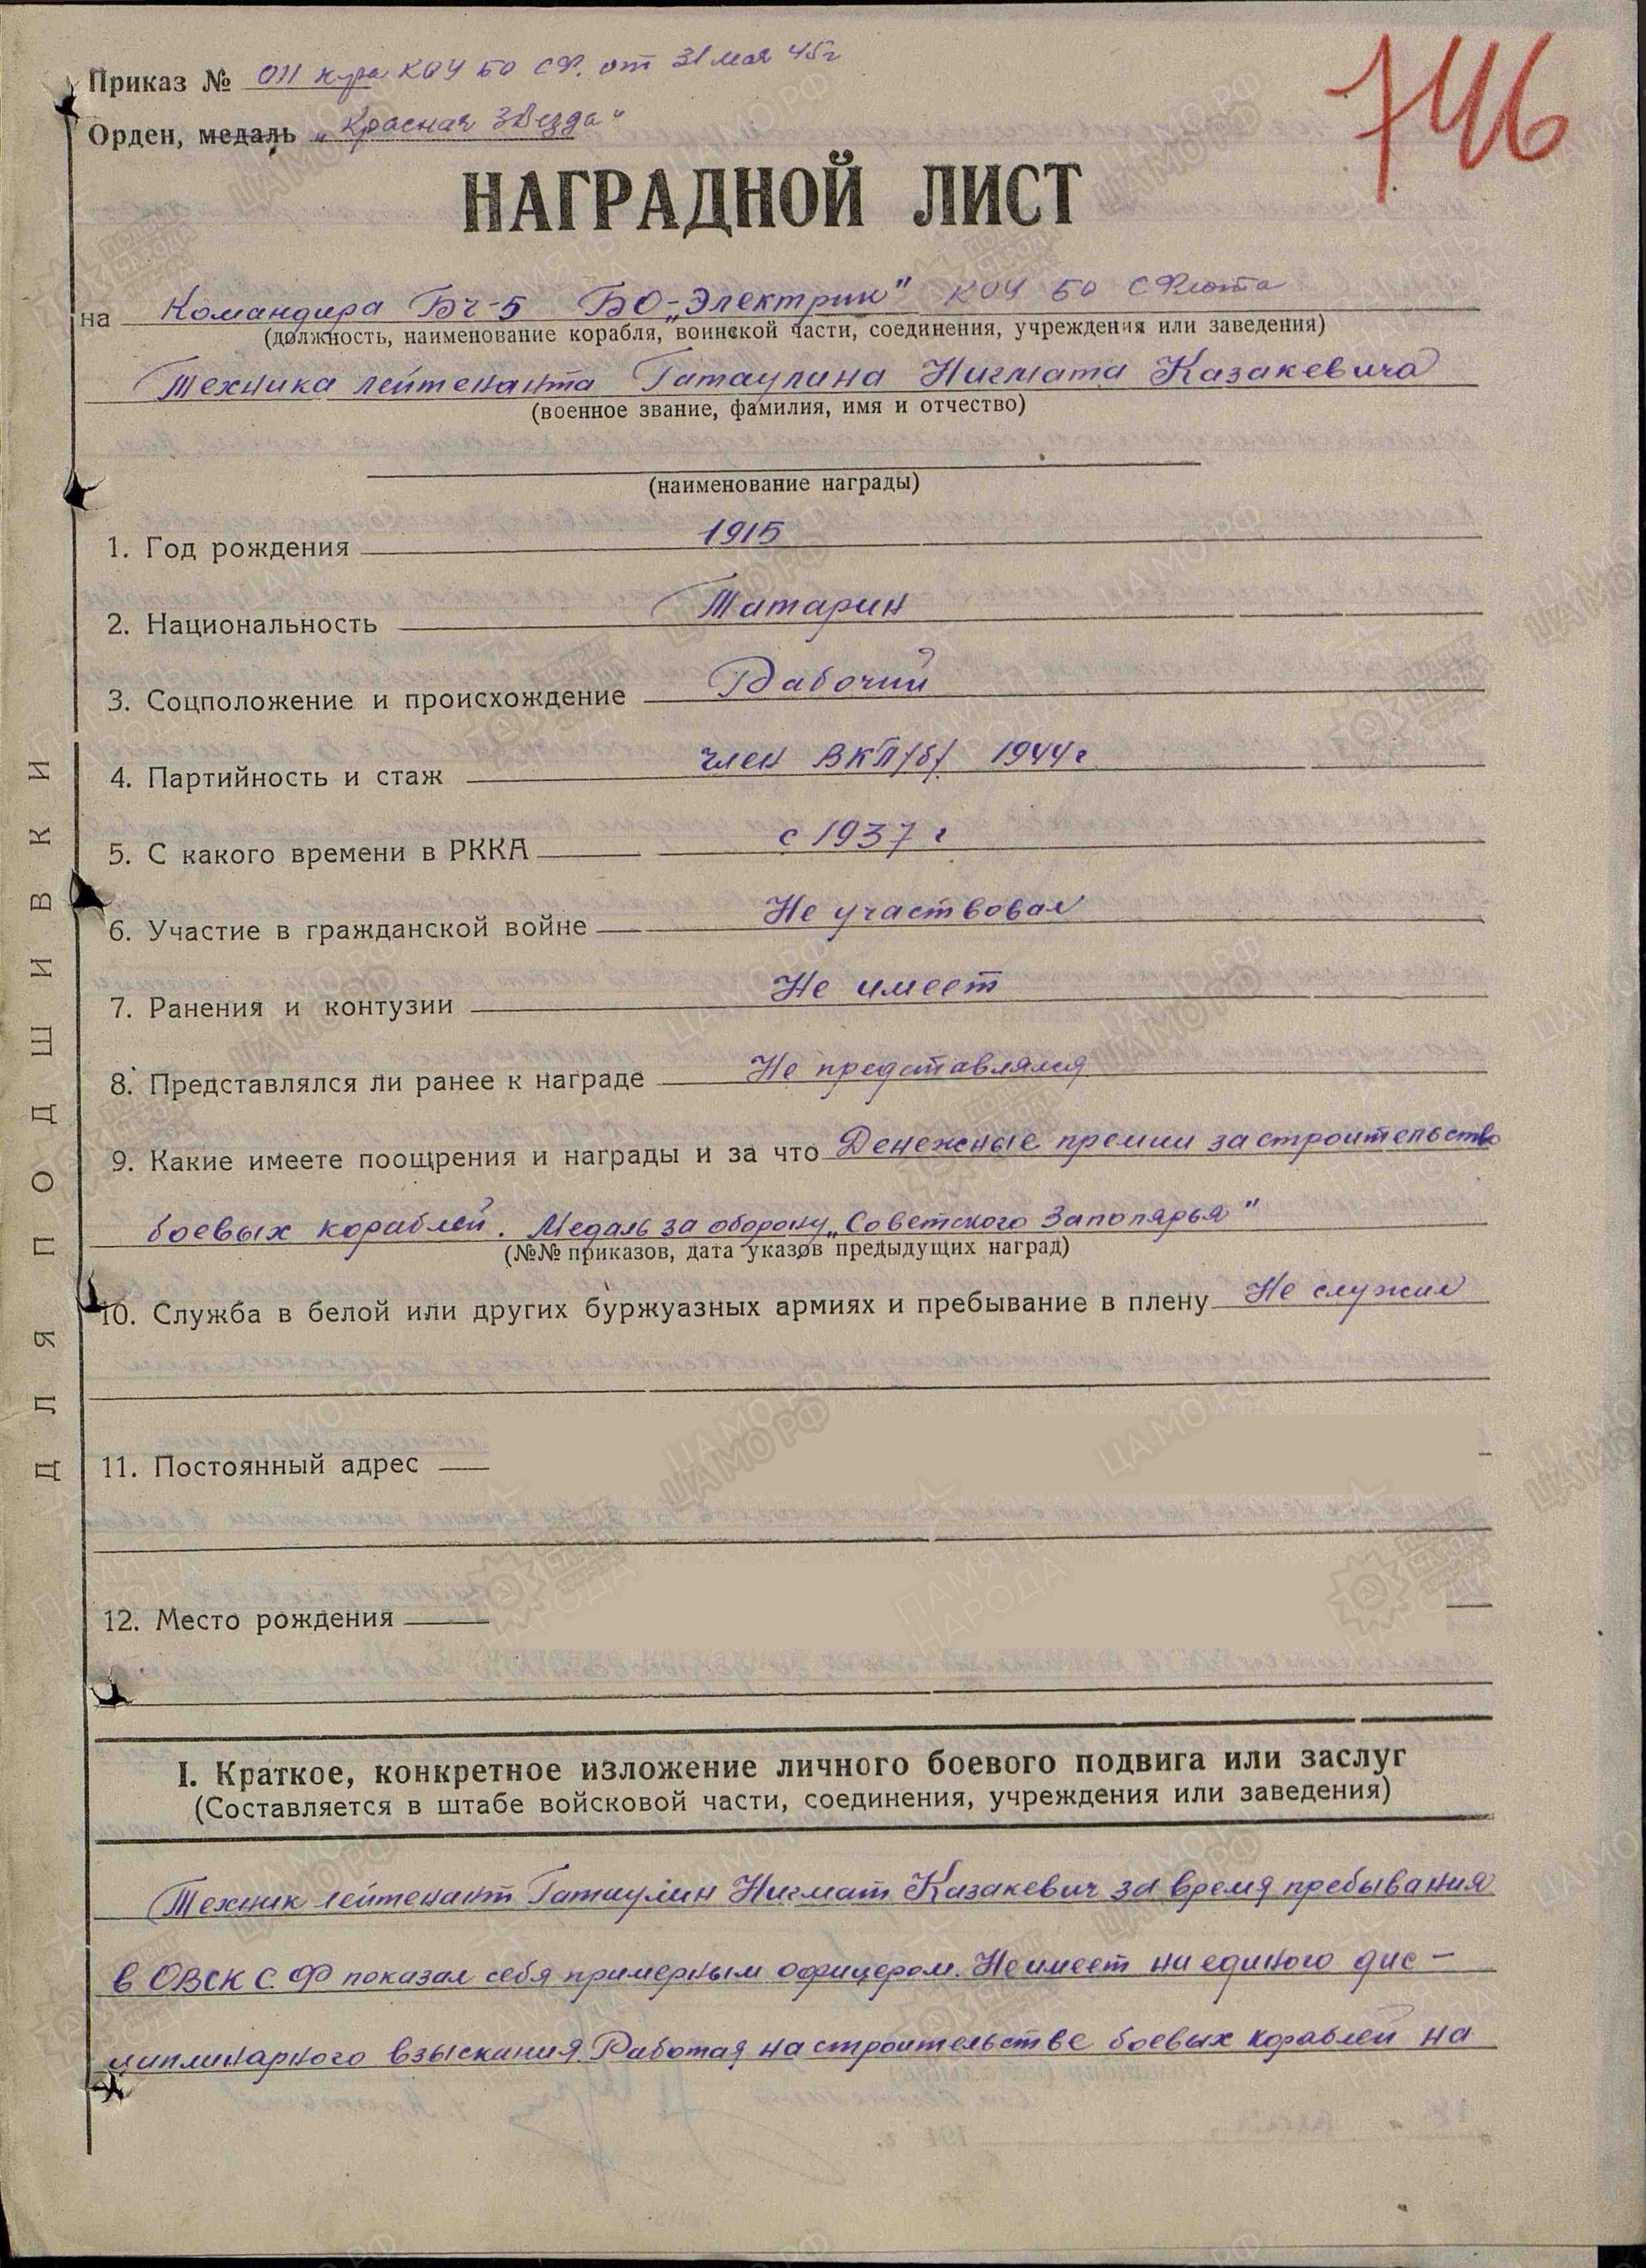 Приказ № 011 к-ра КОУ БО СФ. от 31 мая 45г
746
Орден, медаль „Красная Звезда"
НАГРАДНОЙ ЛИСТ
на Командира БЧ-5 БО-„Электрик" КОУ БО СФлота
(должность, наименование корабля, воинской части, соединения, учреждения или заведения)
Техника лейтенанта Гатаулина Нигмата Казакевича
(военное звание, фамилия, имя и отчество)
(наименование награды)
1. Год рождения 1915
2. Национальность Татарин
3. Соцположение и происхождение Рабочий
4. Партийность и стаж член ВКП/б/ 1944г
5. С какого времени в РККА с 1937 г
6. Участие в гражданской войне Не участвовал
7. Ранения и контузии Не имеет
8. Представлялся ли ранее к награде Не представлялся
9. Какие имеете поощрения и награды и за что Денежные премии за строительство
боевых кораблей. Медаль за оборону „Советского Заполярья"
(№№ приказов, дата указов предыдущих наград)
10. Служба в белой или других буржуазных армиях и пребывание в плену Не служил
11. Постоянный адрес
12. Место рождения
I. Краткое, конкретное изложение личного боевого подвига или заслуг
(Составляется в штабе войсковой части, соединения, учреждения или заведения)
Техник лейтенант Гатаулин Нигмат Казакевич за время пребывания
в ОВСК С.Ф показал себя примерным офицером. Не имеет ни единого дис-
циплинарного взыскания. Работая на строительстве боевых кораблей на
ДЛЯ ПОДШИВКИ